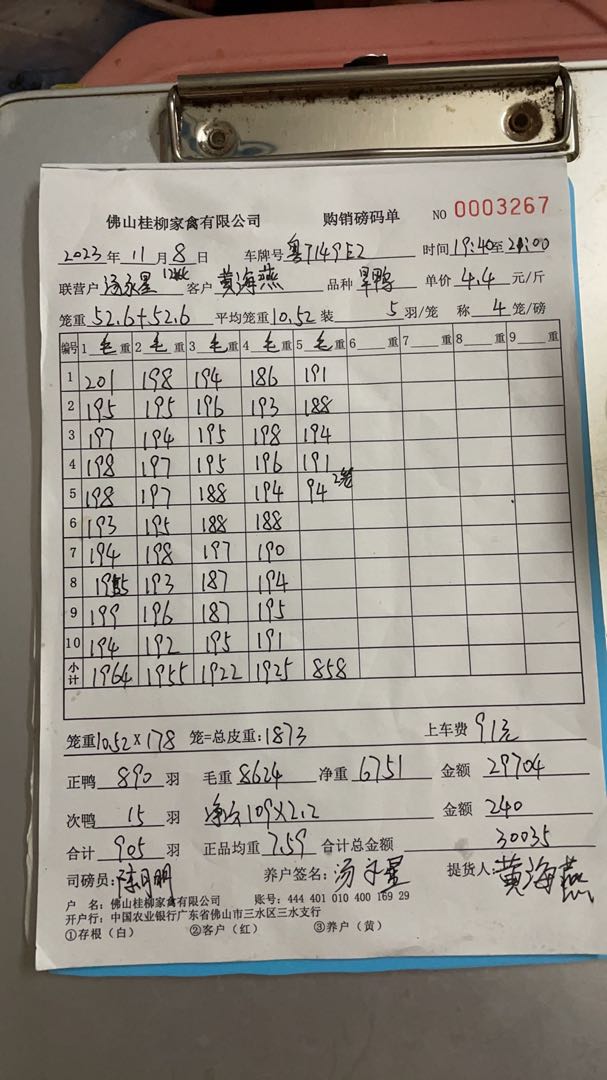 佛山桂柳家禽有限公司 购销磅码单 NO 0003267
2023年11月8日 车牌号 粤T149E2 时间19:40至21:00
联营户 汤永星 客户 黄海燕 品种 旱鸭 单价 4.4 元/斤
笼重 52.6+52.6 平均笼重 10.52 装 5 羽/笼 称 4 笼/磅
编号 1 毛 重 2 毛 重 3 毛 重 4 毛 重 5 毛 重 6 重 7 重 8 重 9 重
1 201 198 194 186 191
2 195 195 196 193 188
3 197 194 195 198 194
4 198 197 195 196 191
5 198 197 188 194 94 2笼
6 193 195 188 188
7 194 198 197 190
8 195 193 187 194
9 199 196 187 195
10 194 192 195 191
小计 1964 1955 1922 1925 858
笼重 10.52×178 笼=总皮重: 1873 上车费 91元
正鸭 890 羽 毛重 8624 净重 6751 金额 29704
次鸭 15 羽 净重109×2.2 金额 240
合计 905 羽 正品均重 7.59 合计总金额 30035
司磅员: 陈月明 养户签名: 汤永星 提货人: 黄海燕
户 名: 佛山桂柳家禽有限公司 账号: 444 401 010 400 169 29
开户行: 中国农业银行广东省佛山市三水区三水支行
①存根（白） ②客户（红） ③养户（黄）